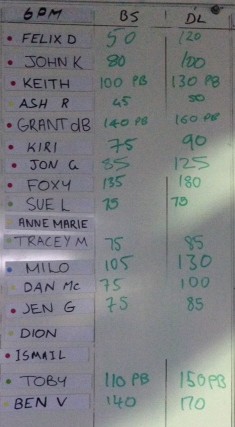 6PM BS DL
FELIX D 50 120
JOHN K 80 100
KEITH 100 PB 130 PB
ASH R 45 50
GRANT dB 140 PB 160 PB
KIRI 75 90
JON G 85 125
FOXY 135 180
SUE L 75 75
ANNE MARIE
TRACEY M 75 85
MILO 105 130
DAN Mc 75 100
JEN G 75 85
DION
ISMAIL
TOBY 110 PB 150 PB
BEN V 140 170